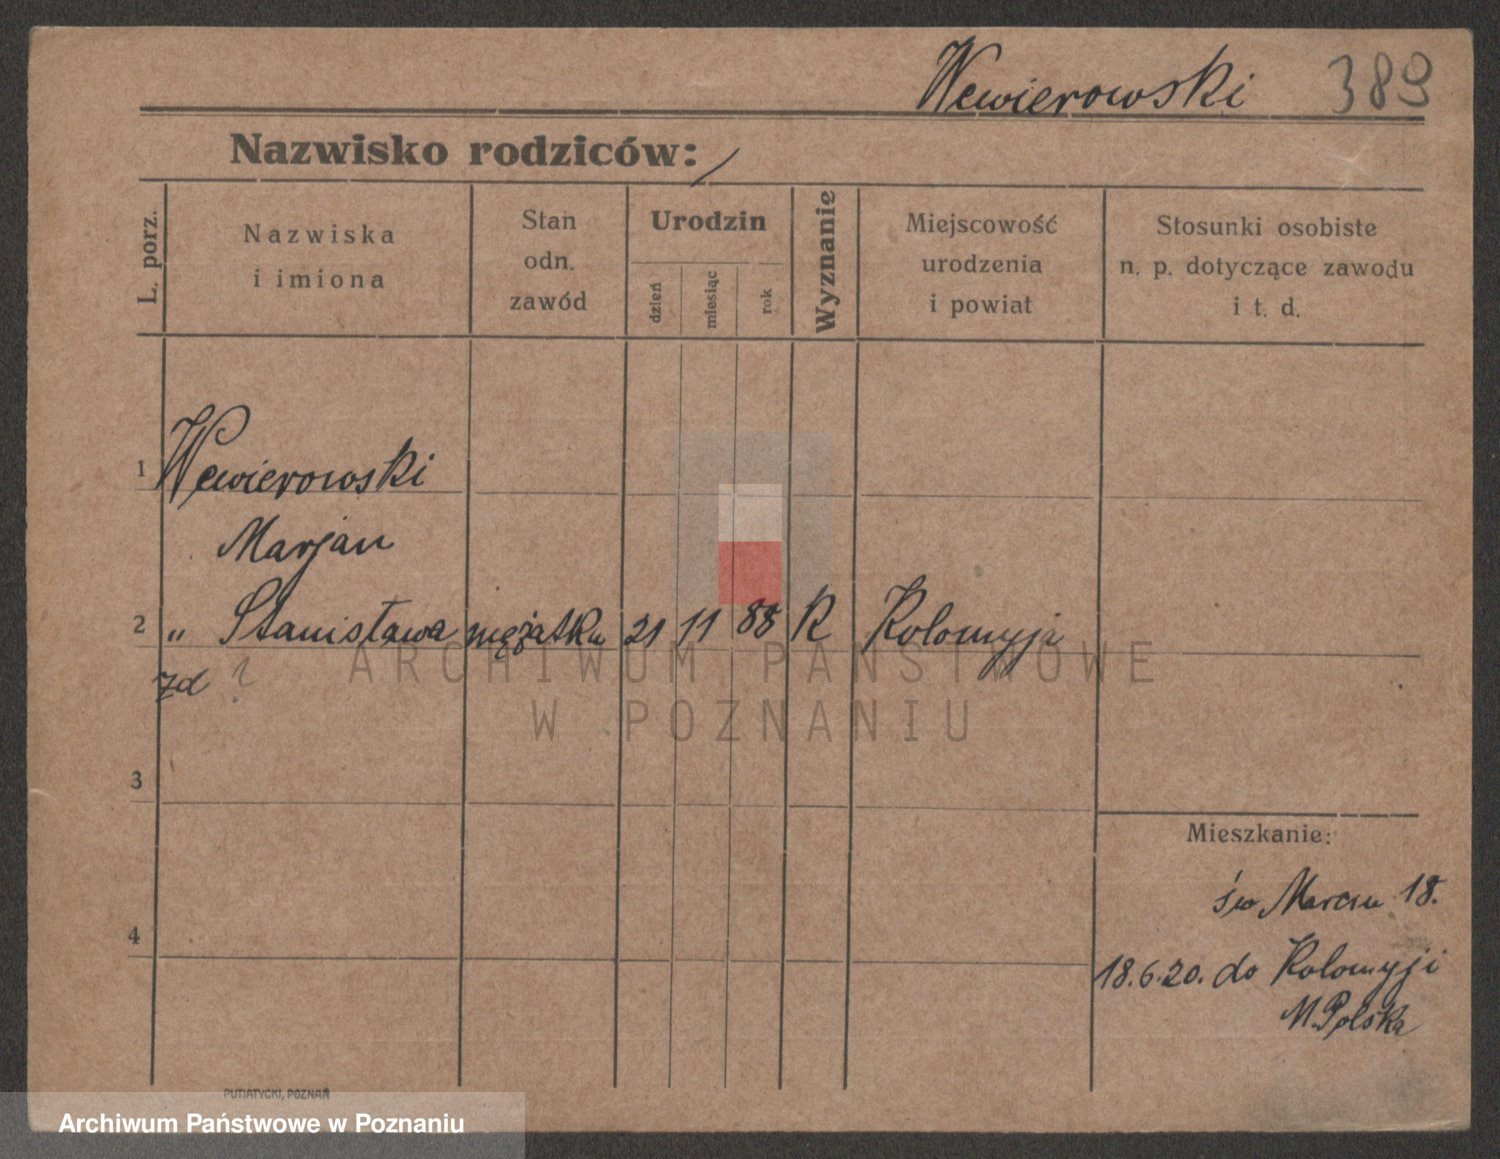 Wewierowski 389
Nazwisko rodziców: /
L. porz.
Nazwiska
i imiona
Stan
odn.
zawód
Urodzin
dzień
miesiąc
rok
Wyznanie
Miejscowość
urodzenia
i powiat
Stosunki osobiste
n. p. dotyczące zawodu
i t. d.
1 Wewierowski
Marjan
2 „ Stanisława mężatka 21 11 88 K Kolomyja
zd ?
3
4
Mieszkanie:
św Marcin 18.
18.6.20. do Kolomyji
M.Polska
PUTIATYCKI, POZNAŃ
ARCHIWUM PAŃSTWOWE
W POZNANIU
Archiwum Państwowe w Poznaniu